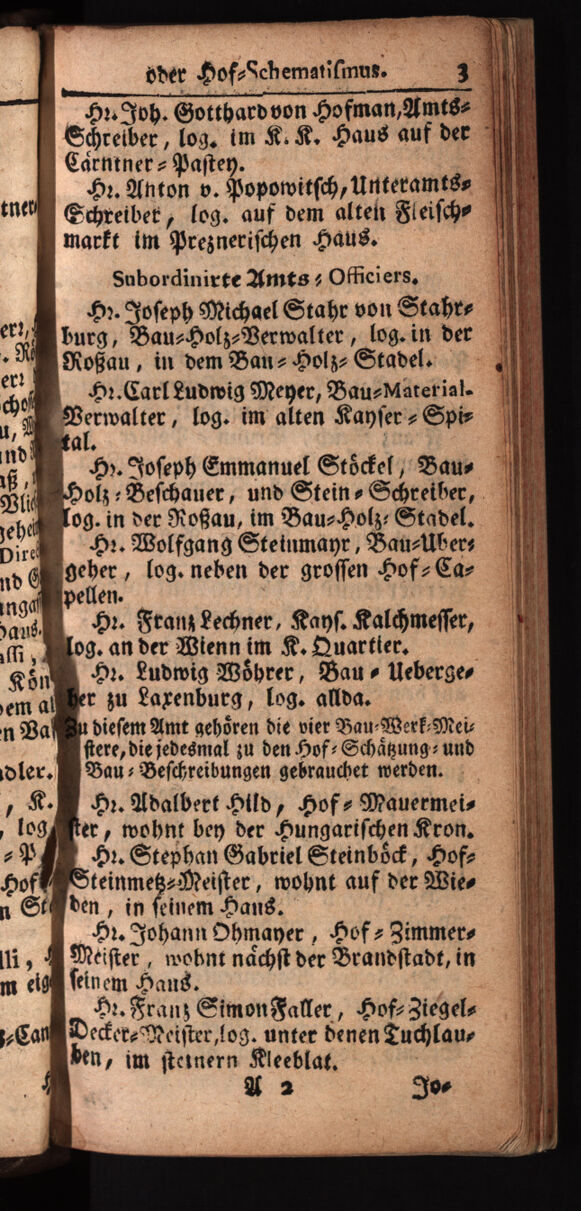 oder Hof-Schematismus. 3
Hr. Joh. Gotthard von Hofman, Amts-
Schreiber, log. im K. K. Haus auf der
Cärntner-Pastey.
Hr. Anton v. Popowitsch, Unteramts-
Schreiber, log. auf dem alten Fleisch-
markt im Preznerischen Haus.
Subordinirte Amts-Officiers.
Hr. Joseph Michael Stahr von Stahr-
burg, Bau-Holz-Verwalter, log. in der
Roßau, in dem Bau-Holz-Stadel.
Hr. Carl Ludwig Meyer, Bau-Material-
Verwalter, log. im alten Kayser-Spi-
tal.
Hr. Joseph Emmanuel Stöckel, Bau-
Holz-Beschauer, und Stein-Schreiber,
log. in der Roßau, im Bau-Holz-Stadel.
Hr. Wolfgang Steinmayr, Bau-Uber-
geher, log. neben der grossen Hof-Ca-
pellen.
Hr. Franz Lechner, Kays. Kalchmesser,
log. an der Wienn im K. Quartier.
Hr. Ludwig Wöhrer, Bau-Ueberge-
her zu Laxenburg, log. allda.
Zu diesem Amt gehören die vier Bau-Werk-Mei-
stere, die jedesmal zu den Hof-Schätzung- und
Bau-Beschreibungen gebrauchet werden.
Hr. Adalbert Hild, Hof-Mauermei-
ster, wohnt bey der Hungarischen Kron.
Hr. Stephan Gabriel Steinböck, Hof-
Steinmetz-Meister, wohnt auf der Wie-
den, in seinem Haus.
Hr. Johann Ohmayer, Hof-Zimmer-
Meister, wohnt nächst der Brandstadt, in
seinem Haus.
Hr. Franz Simon Faller, Hof-Ziegel-
Decker-Meister, log. unter denen Tuchlau-
ben, im steinern Kleeblat.
A 2 Jo-